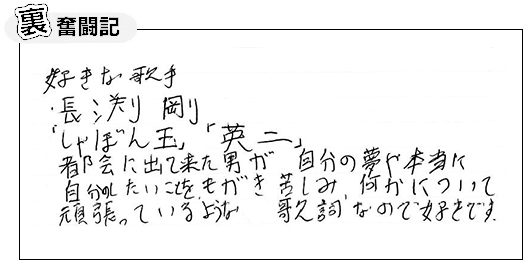 裏奮闘記
好きな歌手
・長渕 剛
「しゃぼん玉」「英二」
都会に出て来た男が 自分の夢や本当に
自分のしたいことをもがき 苦しみ 何かについて
頑張っているような 歌詞なので好きです。